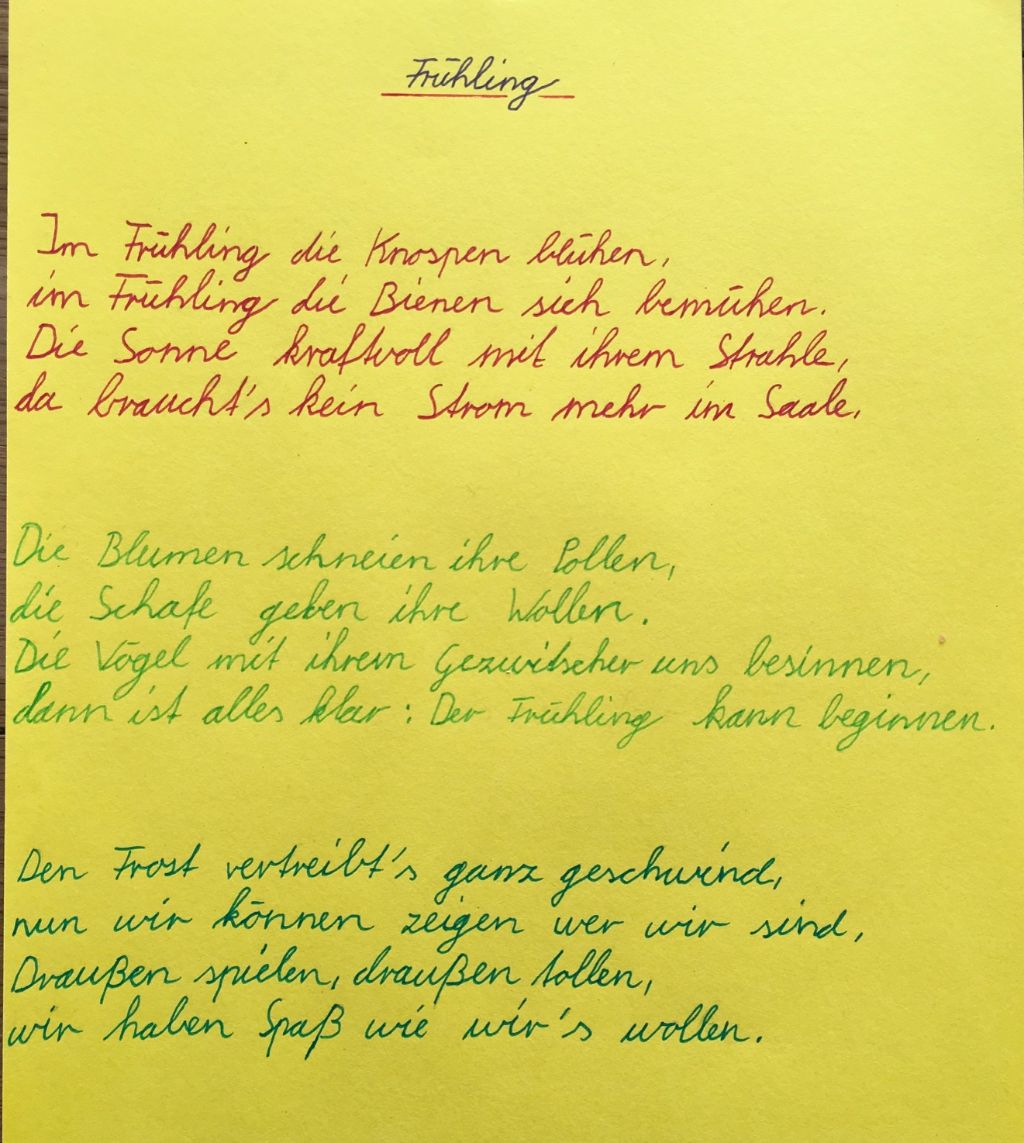 Frühling
Im Frühling die Knospen blühen,
im Frühling die Bienen sich bemühen.
Die Sonne kraftvoll mit ihrem Strahle,
da braucht's kein Strom mehr im Saale.
Die Blumen schneien ihre Pollen,
die Schafe geben ihre Wollen.
Die Vögel mit ihrem Gezwitscher uns besinnen,
dann ist alles klar: Der Frühling kann beginnen.
Den Frost vertreibt's ganz geschwind,
nun wir können zeigen wer wir sind,
Draußen spielen, draußen tollen,
wir haben Spaß wie wir's wollen.